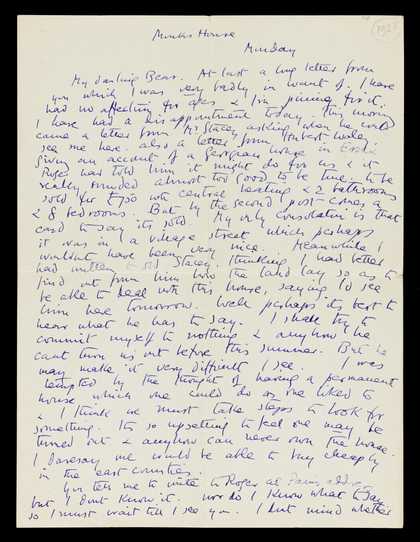 1927
Monks House
Monday
My darling Bear. At last a long letter from
you which I was very badly in want of. I have
had no affection for & I'm pining for it.
I have had a disappointment today. This morning
came a letter from Mr Stacey asking when he could
see me here. also a letter from Hubert Waley
giving an account of a Georgian house in Essex
Roger had told him it might do for us & it
really sounded almost too good to be true, to be
sold for £750 with central heating & 2 bathrooms
& 8 bedrooms. But by the second post comes a
card to say its sold. My only consolation is that
it was in a village street which perhaps
wouldnt have been very nice. Meanwhile I
had written to Stacey thinking I had better
find out from him how the land lay so as to
be able to deal with this house, saying I'd see
him here tomorrow. Well perhaps its best to
hear what he has to say. I shall try to
commit myself to nothing & anyhow he
cant turn us out before this summer. But he
may make it very difficult I see. I was
tempted by the thought of having a permanent
house which one could do as one liked to
& I think we must take steps to look for
something. Its so upsetting to feel one may be
turned out & anyhow can never own the house.
I daresay we would be able to buy cheaply
in the east counties.
You tell me to write to Roger at
but I dont know it. nor do I know what to say
so I must wait till I see you. I dont mind whether